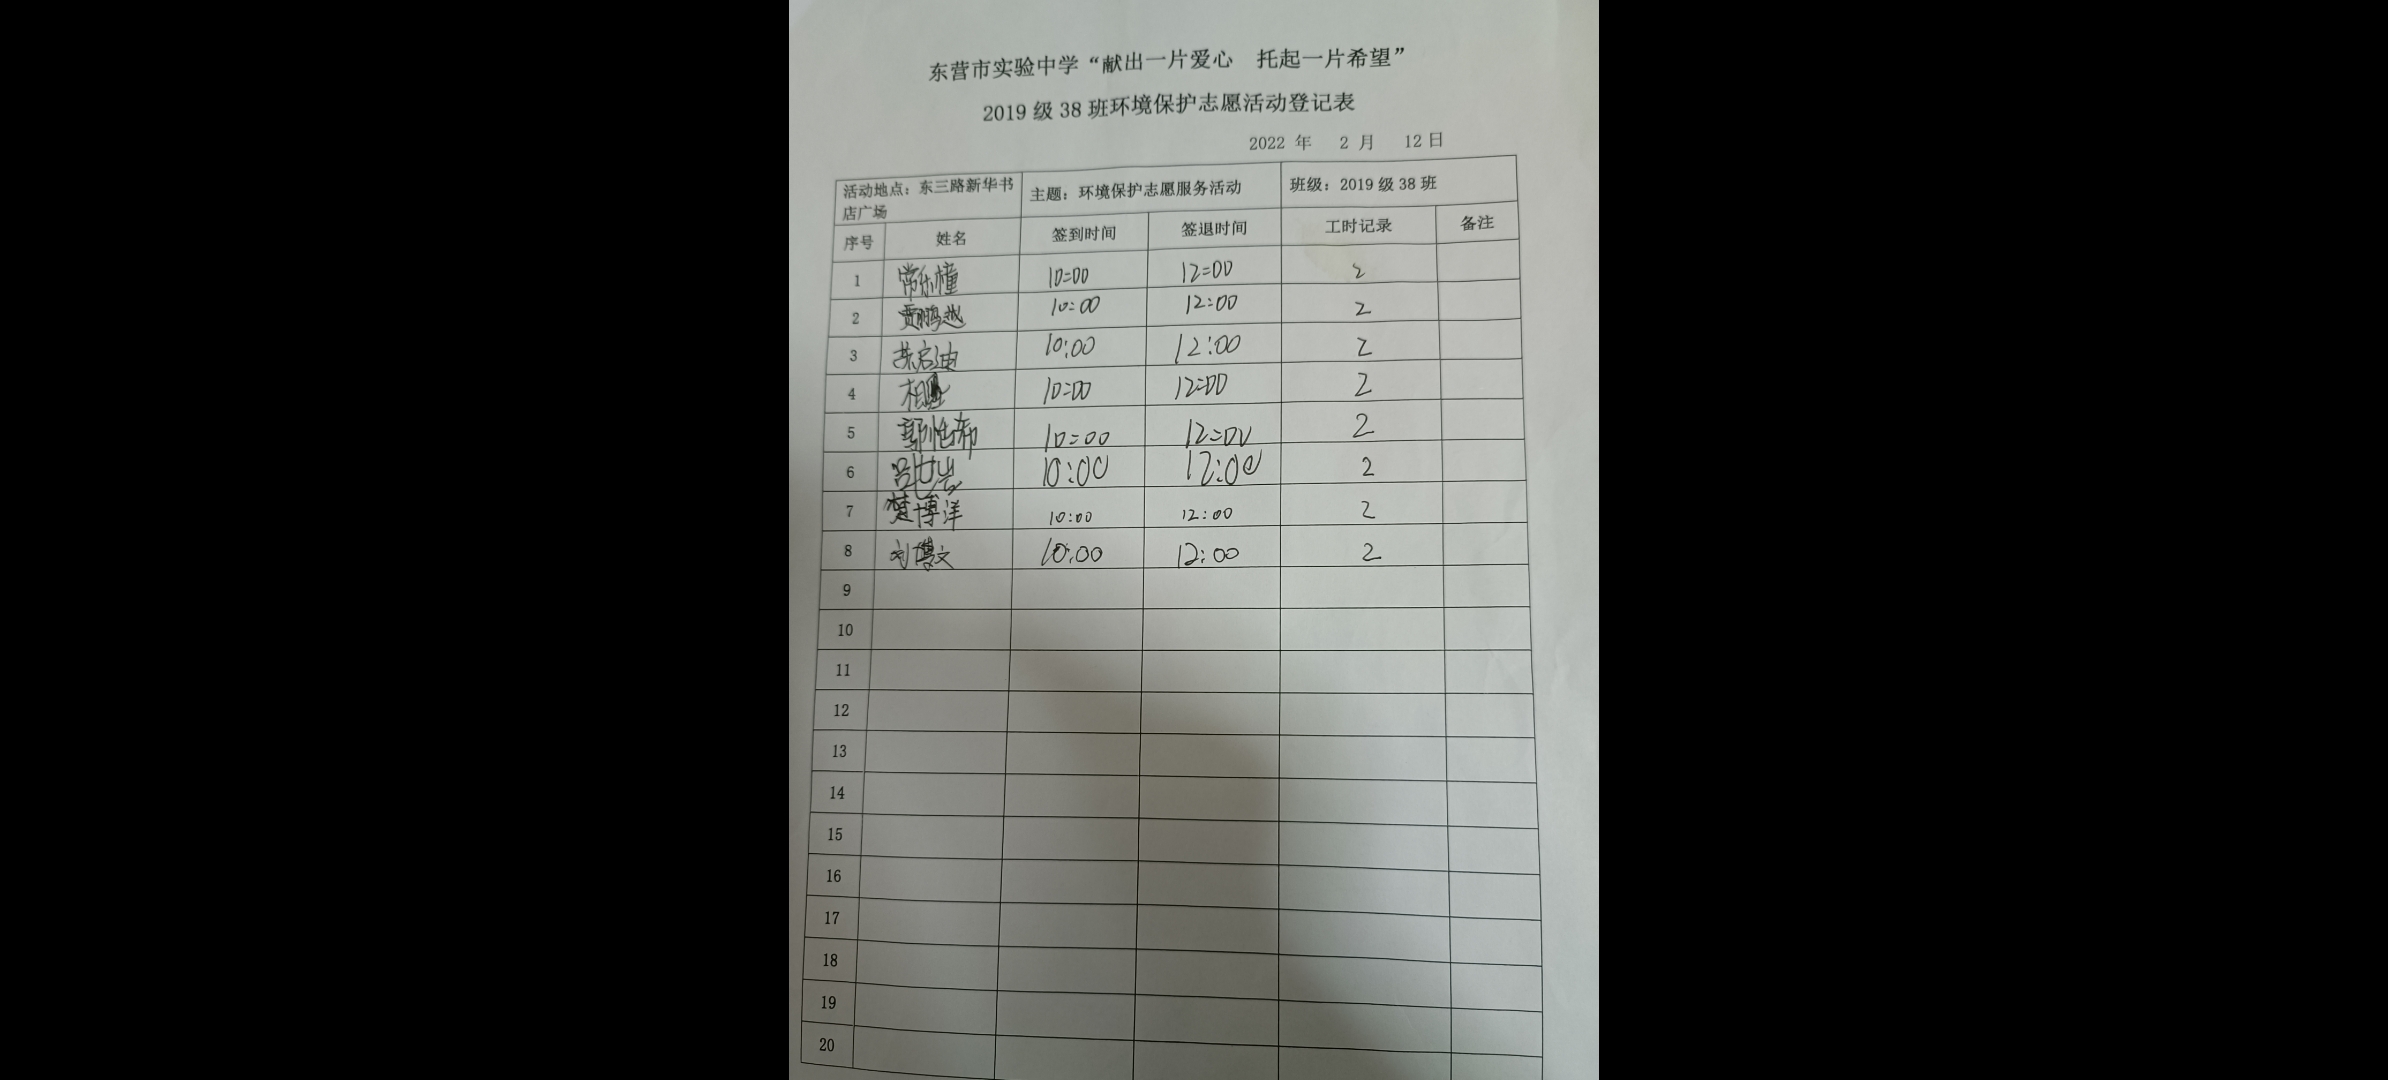 东营市实验中学“献出一片爱心 托起一片希望”
2019 级 38 班环境保护志愿活动登记表
2022 年 2 月 12 日
活动地点：东三路新华书店广场 主题：环境保护志愿服务活动 班级：2019 级 38 班
序号 姓名 签到时间 签退时间 工时记录 备注
1 常乐橦 10:00 12:00 2
2 贾鹏越 10:00 12:00 2
3 苏启迪 10:00 12:00 2
4 10:00 12:00 2
5 10:00 12:00 2
6 10:00 12:00 2
7 楚博洋 10:00 12:00 2
8 刘博文 10:00 12:00 2
9
10
11
12
13
14
15
16
17
18
19
20